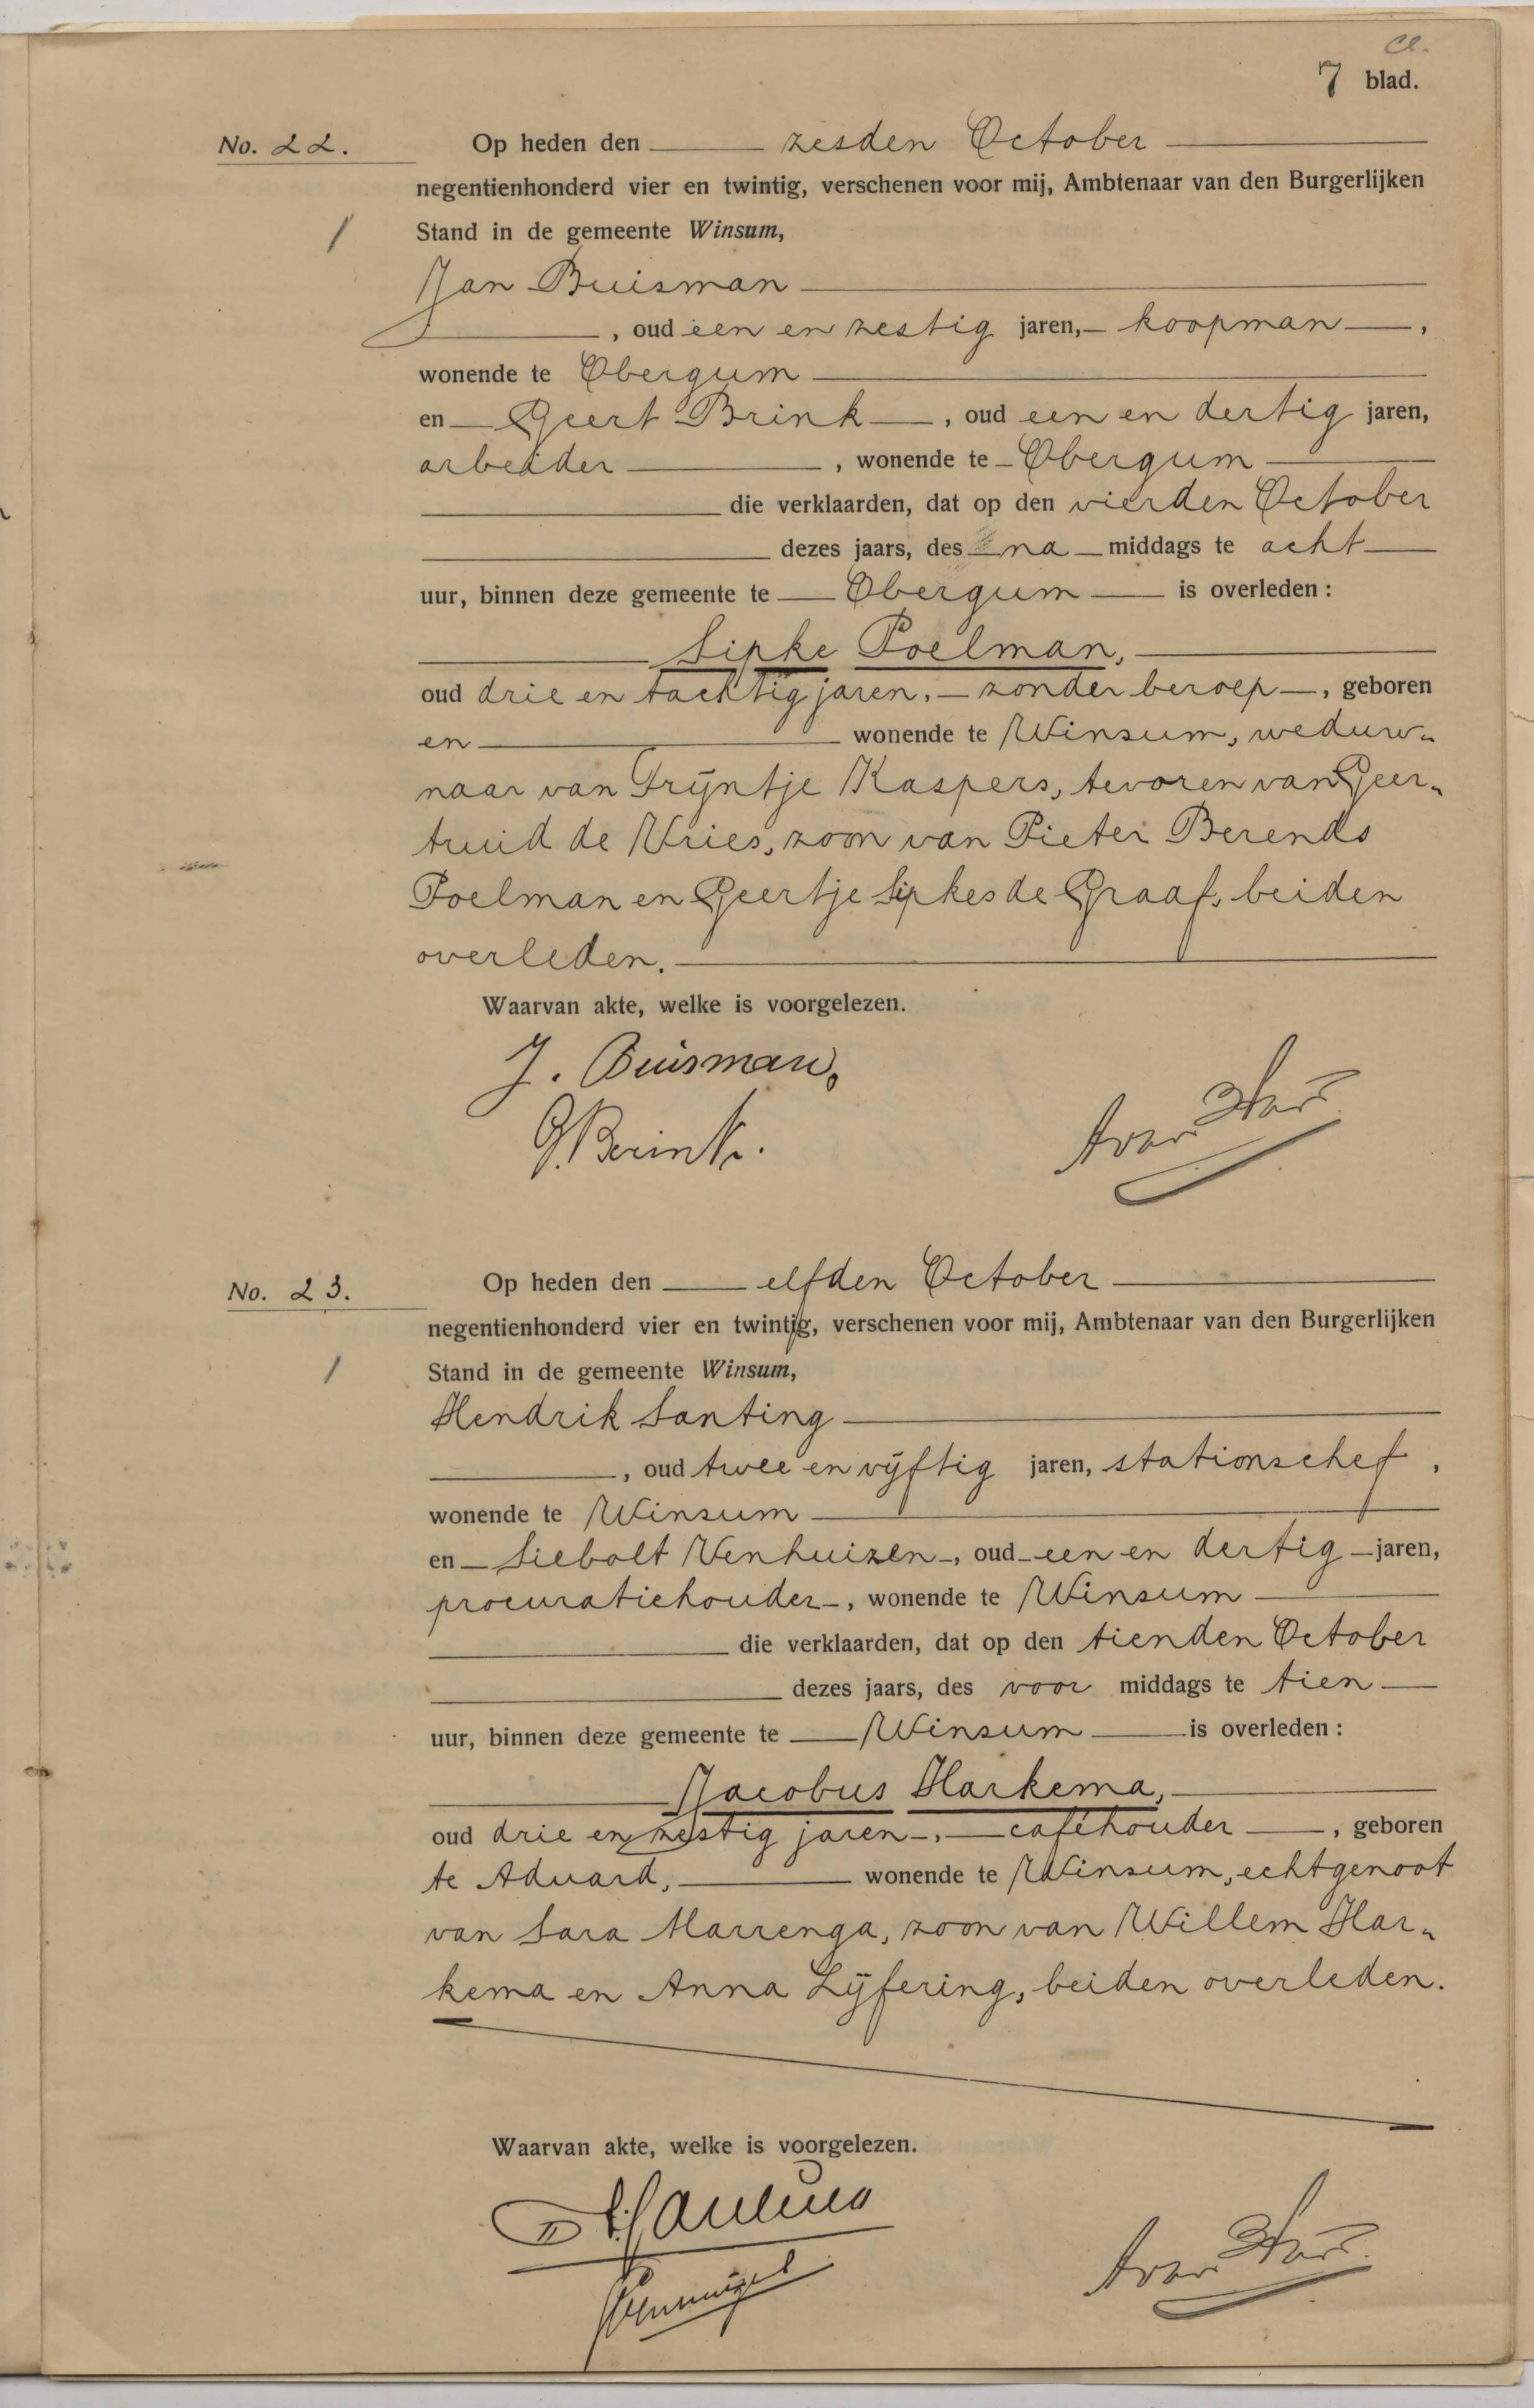 7 blad.
No. 22. Op heden den zesden October
negentienhonderd vier en twintig, verschenen voor mij, Ambtenaar van den Burgerlijken
Stand in de gemeente Winsum,
Jan Buisman
, oud een en zestig jaren, koopman,
wonende te Obergum
en Geert Brink, oud een en dertig jaren,
arbeider, wonende te Obergum
die verklaarden, dat op den vierden October
dezes jaars, des na middags te acht
uur, binnen deze gemeente te Obergum is overleden:
Sipke Poelman,
oud drie en tachtig jaren, zonder beroep, geboren
en wonende te Winsum, weduw-
naar van Trijntje Kaspers, tevoren van Geer-
truid de Vries, zoon van Pieter Berends
Poelman en Geertje Sipkes de Graaf, beiden
overleden.
Waarvan akte, welke is voorgelezen.
J. Buisman,
G. Brink.
No. 23. Op heden den elfden October
negentienhonderd vier en twintig, verschenen voor mij, Ambtenaar van den Burgerlijken
Stand in de gemeente Winsum,
Hendrik Santing
, oud twee en vijftig jaren, stationschef,
wonende te Winsum
en Siebolt Venhuizen, oud een en dertig jaren,
procuratiehouder, wonende te Winsum
die verklaarden, dat op den tienden October
dezes jaars, des voor middags te tien
uur, binnen deze gemeente te Winsum is overleden:
Jacobus Harkema,
oud drie en zestig jaren, caféhouder, geboren
te Aduard, wonende te Winsum, echtgenoot
van Sara Marrenga, zoon van Willem Har-
kema en Anna Lijfering, beiden overleden.
Waarvan akte, welke is voorgelezen.